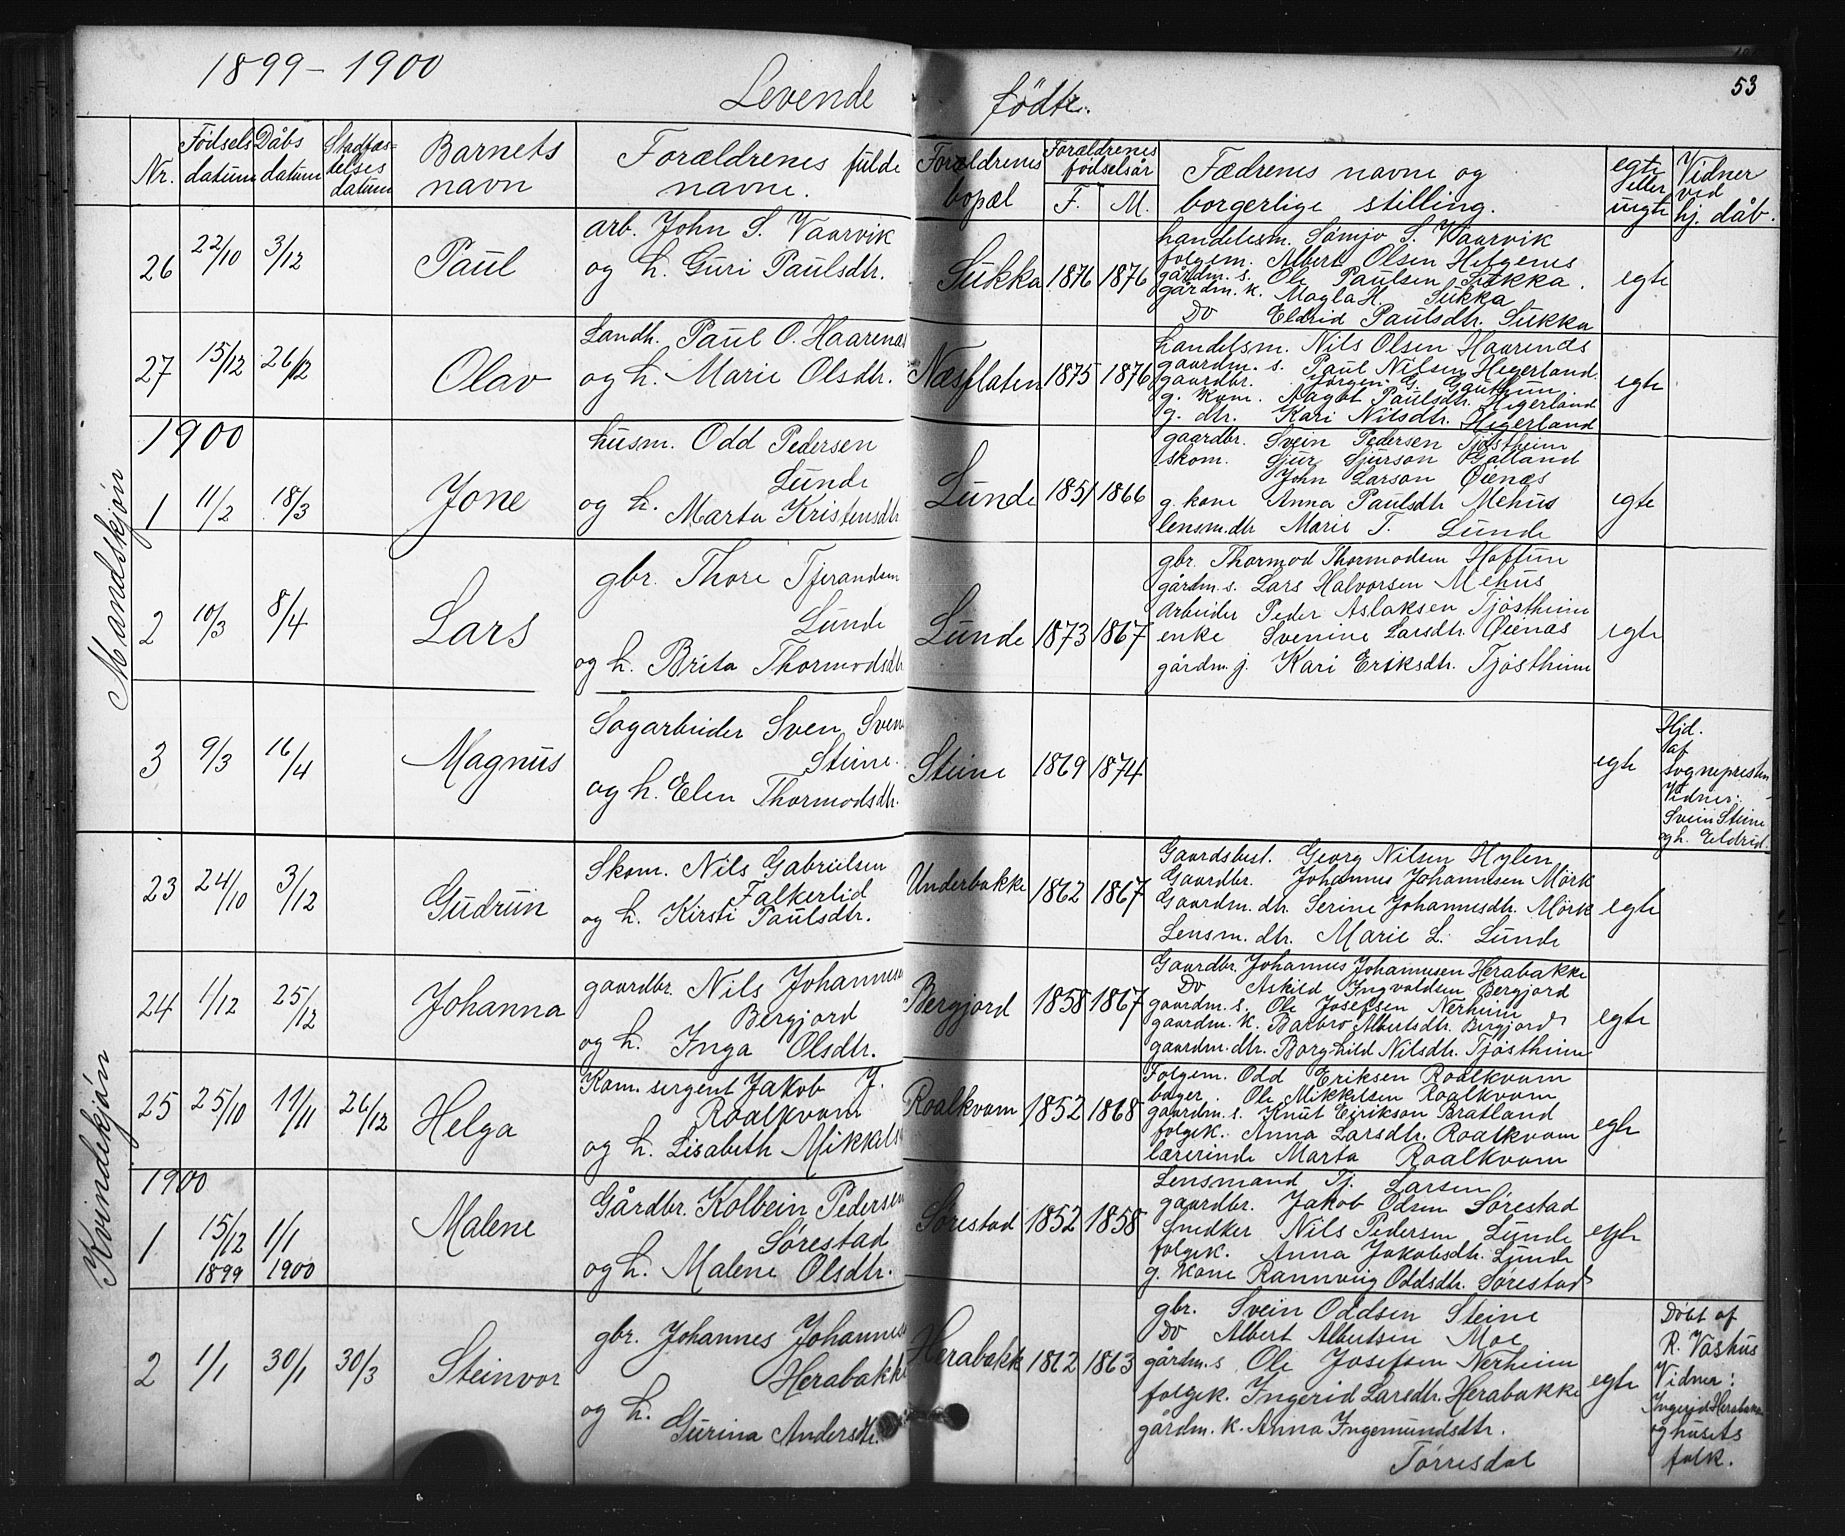 1899-1900
Levende
fødte.
53
Nr.
Fødsels
datum
Dåbs
datum
Stadfæs-
telses
datum
Barnets
navn
Forældrenes fulde
navne.
Forældrenes
bopæl
Forældrenes
fødselsår
F.
M.
Fadrenes navne og
borgerlige stilling.
egte
eller
uegte
Vidner
ved
hj. dåb.
Mandskjøn
26
22/10
3/12
Paul
arb. John S. Vaarvik
og h. Guri Paulsdtr.
Sukka
1876
1876
handelsm. Sømjo S. Vaarvik
folgem. Albert Olsen Helgenes
gårdm. s. Ole Paulsen Sukka.
gårdm. k. Magla H. Sukka
Do Eldrid Paulsdtr. Sukka
egte
27
15/12
26/12
Olav
Landh. Paul O. Haarenæs
og h. Marie Olsdtr.
Næsflaten
1875
1876
handelsm. Nils Olsen Haarenæs
gaardm. s. Paul Nilsen Hegerland
gaardbr. Jørgen G. Gauthun
g. kone. Aagot Paulsdtr. Hegerland
g. dtr. Kari Nilsdtr. Hegerland
egte
1900
1
11/2
18/3
Jone
husm. Odd Pedersen
Lunde
og h. Marta Kristensdtr
Lunde
1851
1866
gaardbr. Svein Pedersen Tjøstheim
skom. Sjur Sjurson Galland
John Larson Øienæs
g. kone Anna Paulsdtr Mehus
lensm.dtr Marie T. Lunde
egte
2
10/3
8/4
Lars
gbr. Thore Tjerandsen
Lunde
og h. Brita Thormodsdtr
Lunde
1873
1867
gbr. Thormod Thormodsen Hoftun
gårdm. s. Lars Halvorsen Mehus
Arbeider Peder Aslaksen Tjøstheim
enke Svenine Larsdtr. Øienæs
gårdm. j. Kari Eriksdtr. Tjøstheim
egte
3
9/3
16/4
Magnus
Sagarbeider Sven Sven
Steine.
og h. Elen Thormodsdtr.
Steine
1869
1874
egte
Hjd.
af
sognepresten
Vidner:
Svein Steine
og h. Eldrid.
Kvindekjøn
23
24/10
3/12
Gudrun
Skom. Nils Gabrielsen
Falkerlid
og h. Kirsti Paulsdtr.
Underbakke
1862
1867
Gaardsbest. Georg Nilsen Hylen
Gaardbr. Johannes Johannesen Mörk
Gaardm. dtr. Serine Johannesdtr. Mörk
Lensm. dtr. Marie L. Lunde
egte
24
1/12
25/12
Johanna
gaardbr. Nils Johannesen
Bergjord
og h. Inga Olsdtr.
Bergjord
1858
1867
Gaardbr. Johannes Johannesen Herabakke
Do Askild Ingvaldsen Bergjord
gaardm. s. Ole Josefsen Nerheim
gaardm. k. Barbro Albertsdtr. Bergjord
gaardm. dtr. Borghild Nilsdtr. Tjøstheim
egte
25
25/10
11/11
26/12
Helga
Kom. sergent Jakob J.
Roalkvam
og h. Lisabeth Mikkels
Roalkvam
1852
1868
Folgem. Odd Eriksen Roalkvam
bager. Ole Mikkelsen Roalkvam
gaardm. s. Knut Eirikson Bratland
folgek. Anna Larsdtr. Roalkvam
lærerinde Marta Roalkvam
egte
1900
1
15/12
1899
1/1
1900
Malene
Gårdbr. Kolbein Pedersen
Sørestad
og h. Malene Olsdtr.
Sørestad
1852
1858
Lensmand Tj. Larsen
gaardbr. Jakob Odsen Sørestad
Snedker Nils Pedersen Lunde
folgek. Anna Jakobsdtr. Lunde
g. kone Rannveig Oddsdtr. Sørestad
egte
2
1/1
30/1
30/3
Steinvor
gbr. Johannes Johannes
Herabakke
og h. Gurina Andersdtr.
Herabakk
1862
1863
gbr. Svein Oddsen Steine
Do Albert Albertsen Moe
gårdm. s Ole Josefsen Nerheim
folgek. Ingerid Larsdtr. Herabakke
gårdm. k. Anna Ingemundsdtr.
Torresdal
egte
Døbt af
R. Vashus
Vidner:
Ingerid Herabakke
og husets
folk.